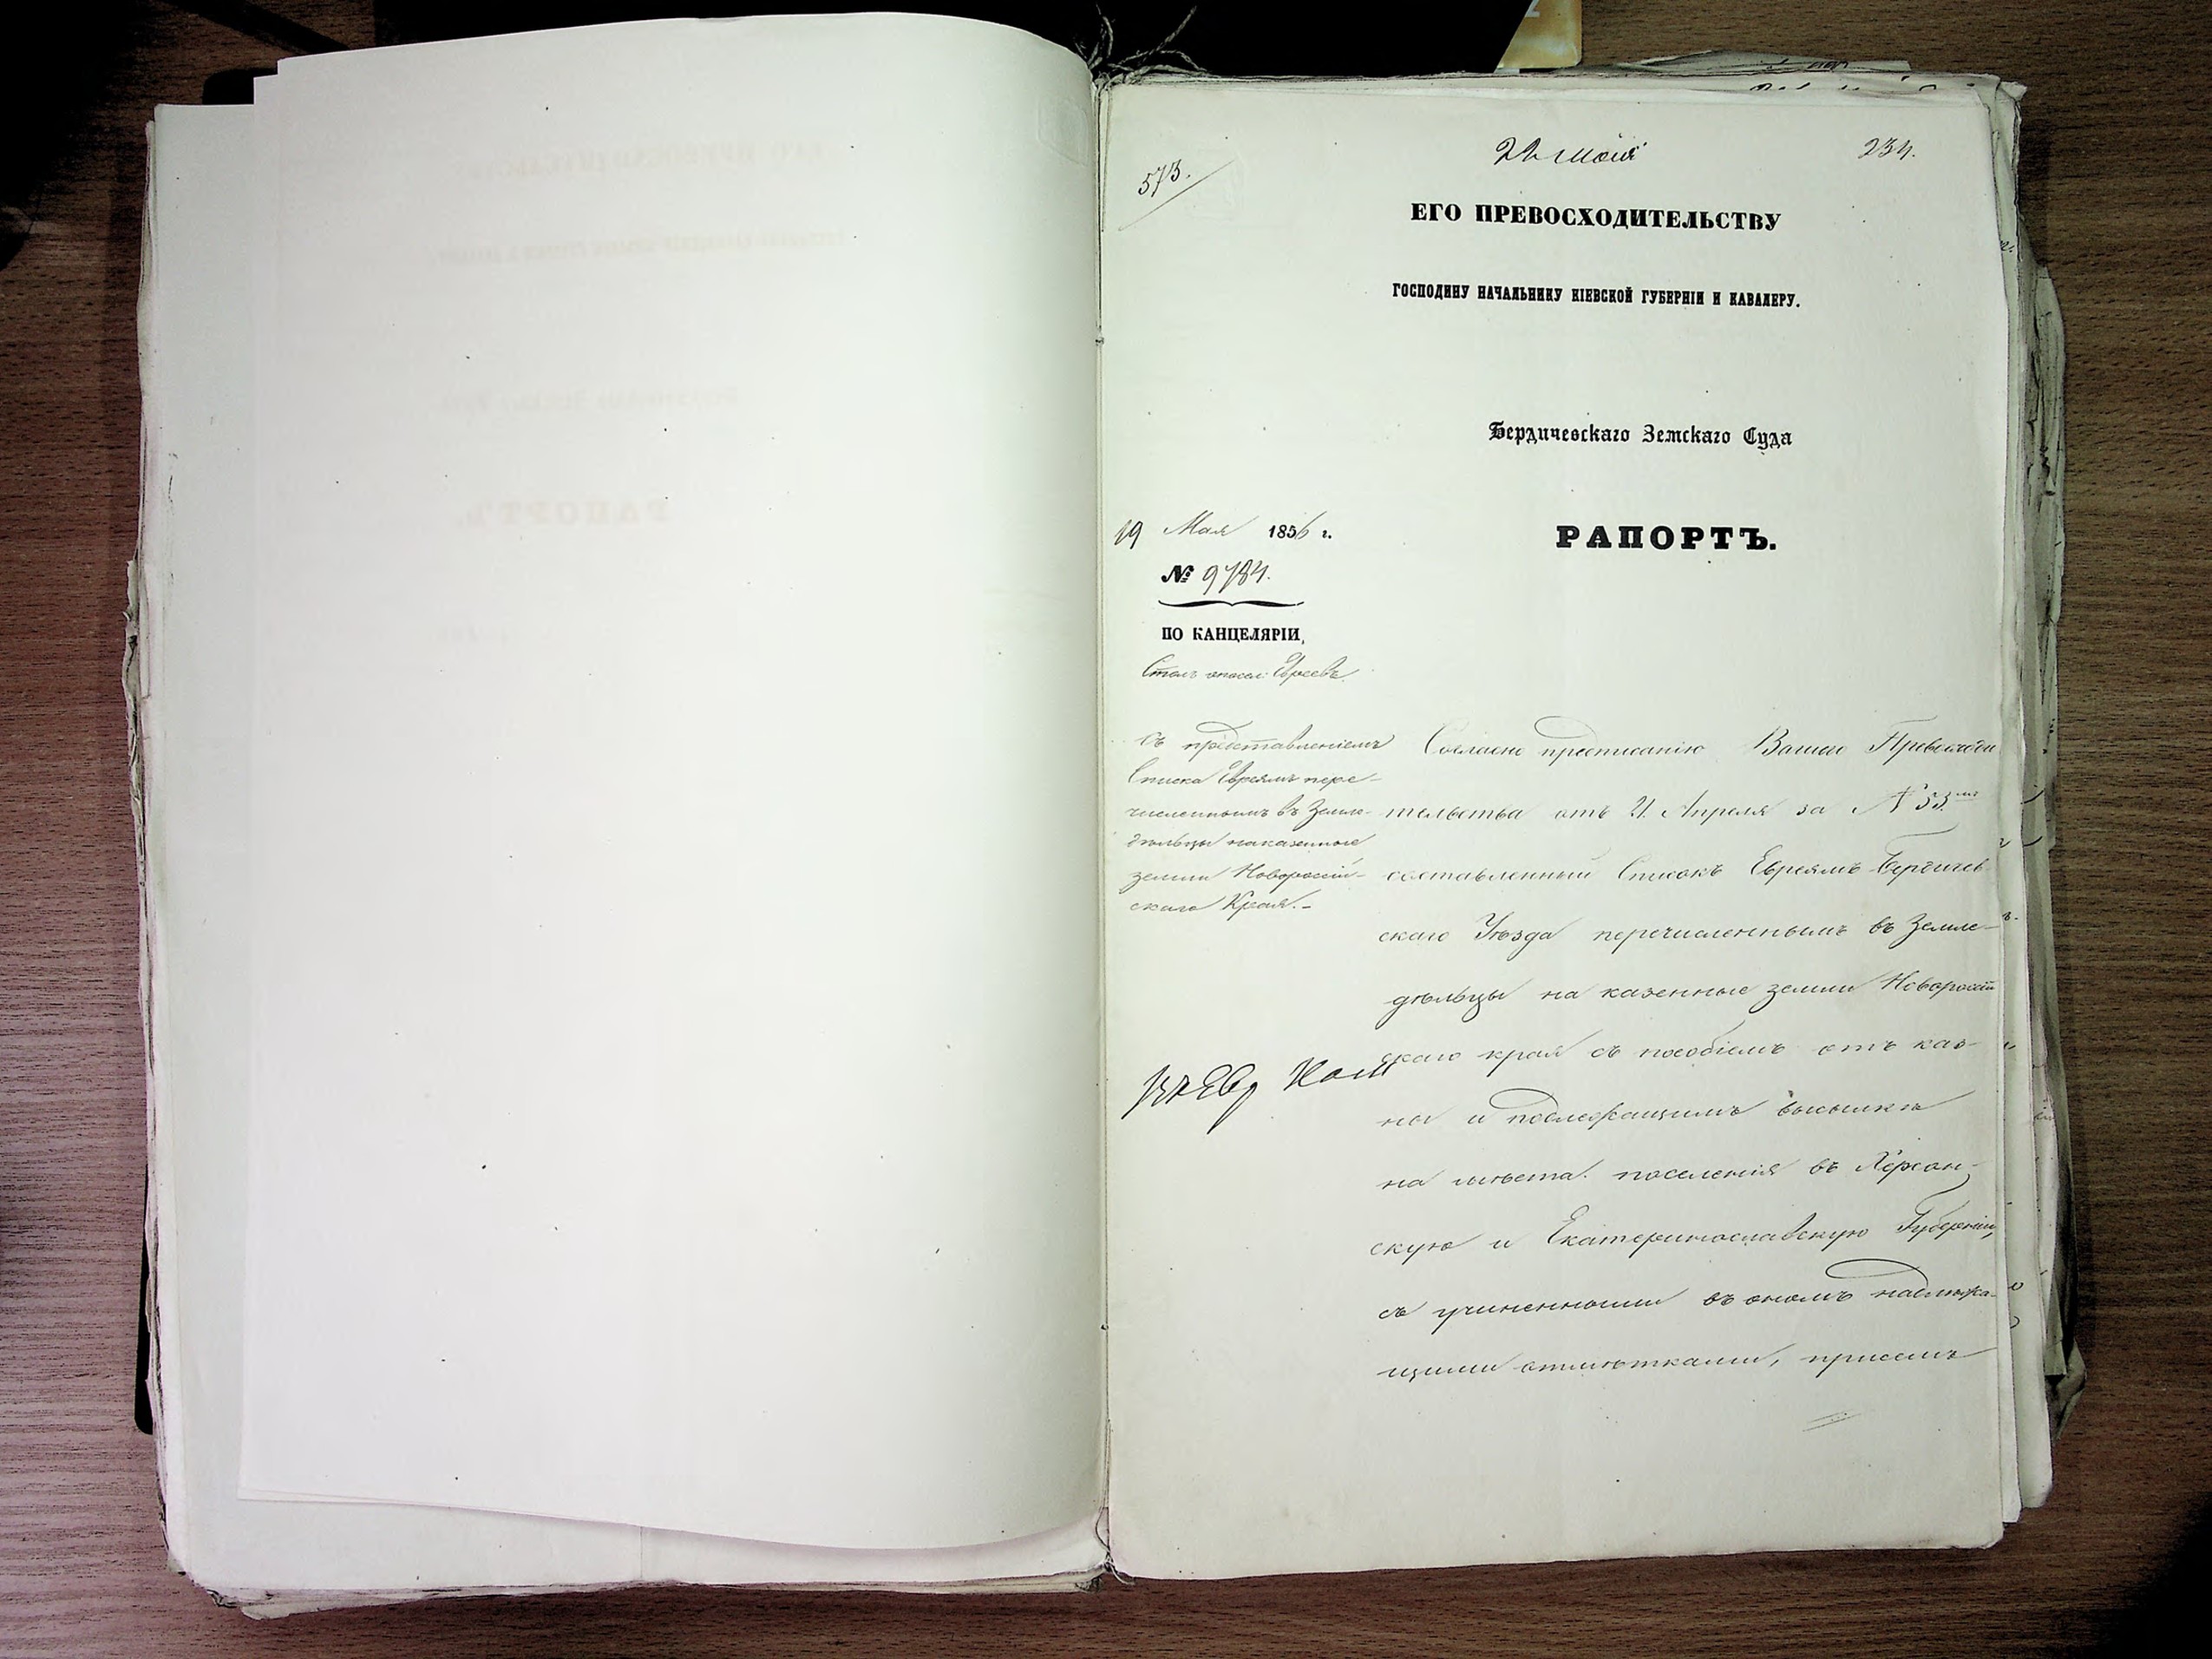 573.
22 мая
234.
ЕГО ПРЕВОСХОДИТЕЛЬСТВУ
ГОСПОДИНУ НАЧАЛЬНИКУ КІЕВСКОЙ ГУБЕРНІИ И КАВАЛЕРУ.
Бердичевскаго Земскаго Суда
РАПОРТЪ.
19 Мая 1856 г.
№ 9784.
ПО КАНЦЕЛЯРІИ,
Столъ Евреевъ
Съ представленіемъ
Списка Евреямъ пере-
численнымъ въ Земле-
дѣльцы на казенные
земли Новороссій-
скаго Края.-
Согласно предписанію Вашего Превосходи
тельства отъ 21 Апреля за №
составленный Списокъ Евреямъ Бердичев
скаго Уѣзда перечисленнымъ въ Земле-
дѣльцы на казенные земли Новороссій
скаго края съ пособіемъ отъ каз-
ны и подлежащимъ высылкѣ
на мѣста поселенія въ Херсон-
скую и Екатеринославскую Губерніи,
съ учиненными въ ономъ надлежа-
щими отмѣтками, присемъ